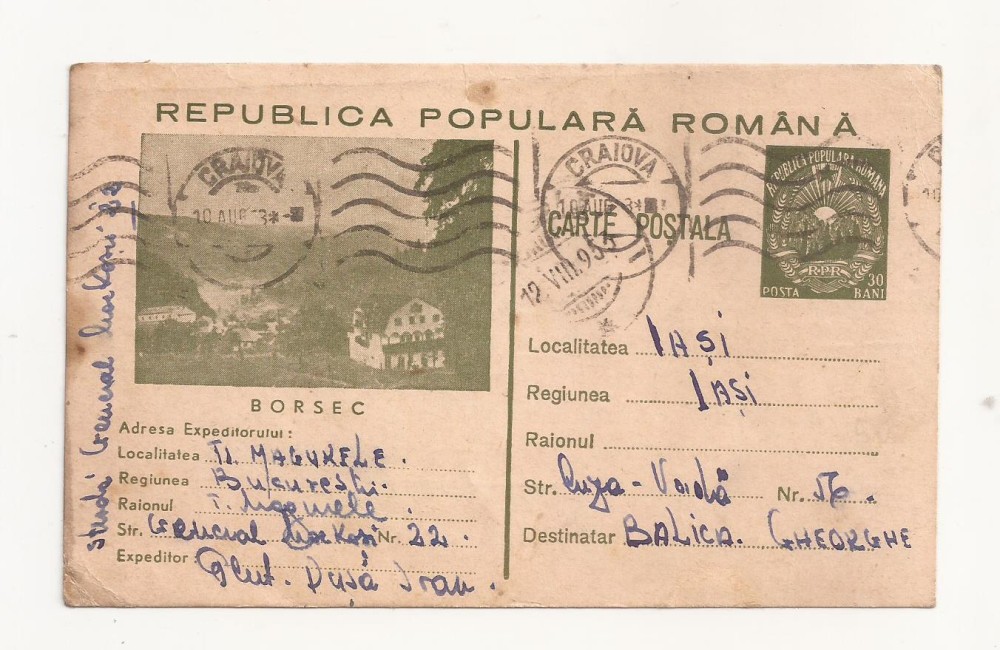 REPUBLICA POPULARĂ ROMÂNĂ
CRAIOVA
10 AUG 53
CRAIOVA
10 AUG 53
12.VIII.953
CARTE POȘTALA
REPUBLICA POPULARA ROMANA
RPR
POSTA 30 BANI
BORSEC
Adresa Expeditorului:
Localitatea Tr. MAGURELE.
Regiunea București.
Raionul T. Magurele
Str. General Nr. 22.
Expeditor: Plut. Dușă Ioan.
Localitatea IAȘI
Regiunea IAȘI
Raionul
Str. Cuza-Vodă Nr. 56.
Destinatar BALICA. GHEORGHE
strada General 22